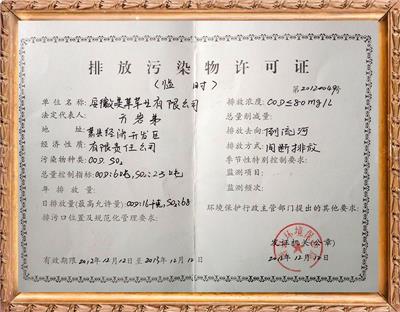 排放污染物许可证
（临 时）
第2012004号
单位名称：安徽 有限公司
法定代表：
地 址：萧县经济开发区
经济性质：有限责任公司
污染物种类：COD. SO₂
总量控制指标：COD: 6吨, SO₂: 25吨
年 排 放 量：
日排放量（最高允许量）COD: 16.4kg, SO₂: 68
排污口位置及规范化管理要求：
有效期限 2012年12月12日至2013年12月12日
排放浓度：COD≤80mg/L
总量削减量：
排放去向：倒流河
排放方式：间断排放
季节性特别控制要求：
监测项目：
监测频次：
环境保护行政主管部门提出的其他要求：
发证机关（公章）
2012年12月12日